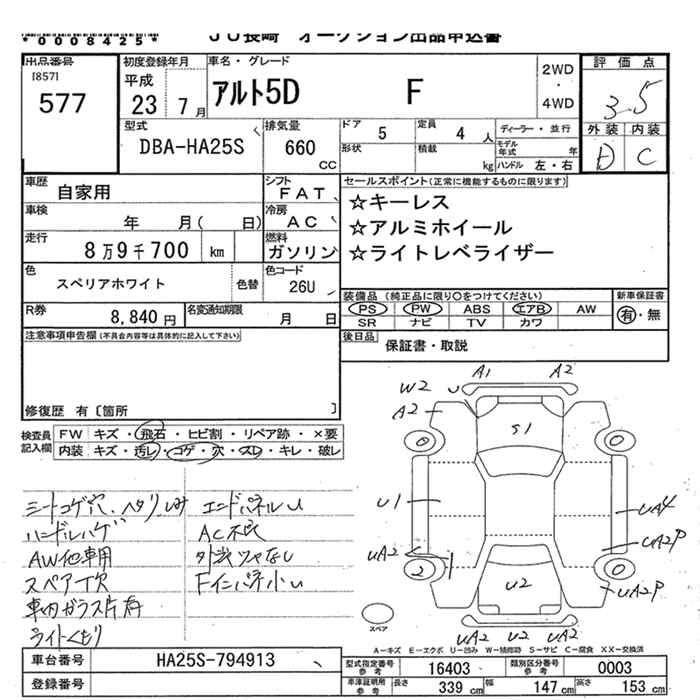 JU長崎 オークション出品申込書
*0008425*
出品番号
[857]
577
初度登録年月
平成
23 7月
車名・グレード
アルト5D F
2WD
・
4WD
評価点
3.5
外装 内装
D C
型式
DBA-HA25S
排気量
660
CC
ドア 5
定員 4 人
形状
積載 kg
ディーラー・並行
モデル年式 年
ハンドル 左・右
車歴
自家用
シフト
FAT
車検
年 月( 日)
冷房
AC
走行
8万9千700 km
燃料
ガソリン
色
スペリアホワイト
色替
色コード
26U
R券
8,840 円
名変通知期限
月 日
セールスポイント(正常に機能するものに限ります)
☆キーレス
☆アルミホイール
☆ライトレベライザー
装備品(純正品に限り○をつけてください)
PS PW ABS エアB AW
SR ナビ TV カワ
新車保証書
有・無
後日品
保証書・取説
注意事項申告欄(不具合内容等は具体的に記入して下さい)
修復歴 有〔箇所 〕
検査員
記入欄
FW キズ・飛石・ヒビ割・リペア跡・×要
内装 キズ・汚レ・コゲ・穴・スレ・キレ・破レ
シートコゲ穴、ヘタリ、しみ
ハンドルハゲ
AW他車用
スペア欠
車内ガラス片有
ライトくもり
エンドパネルU
AC不良
外装ツヤなし
Fインパネ小U
A1 A2
W2 U
A2
S1
U1
UA4
UA2
UA2P
2
U2
UA2P
UA2 U2 UA2
スペア
A－キズ E－エクボ U－凹み W－補修跡 S－サビ C－腐食 XX－交換済
車台番号 HA25S-794913
登録番号
型式指定番号
参考
16403
類別区分番号
参考
0003
車庫証明用
参考
長さ 339 cm 幅 147 cm 高さ 153 cm